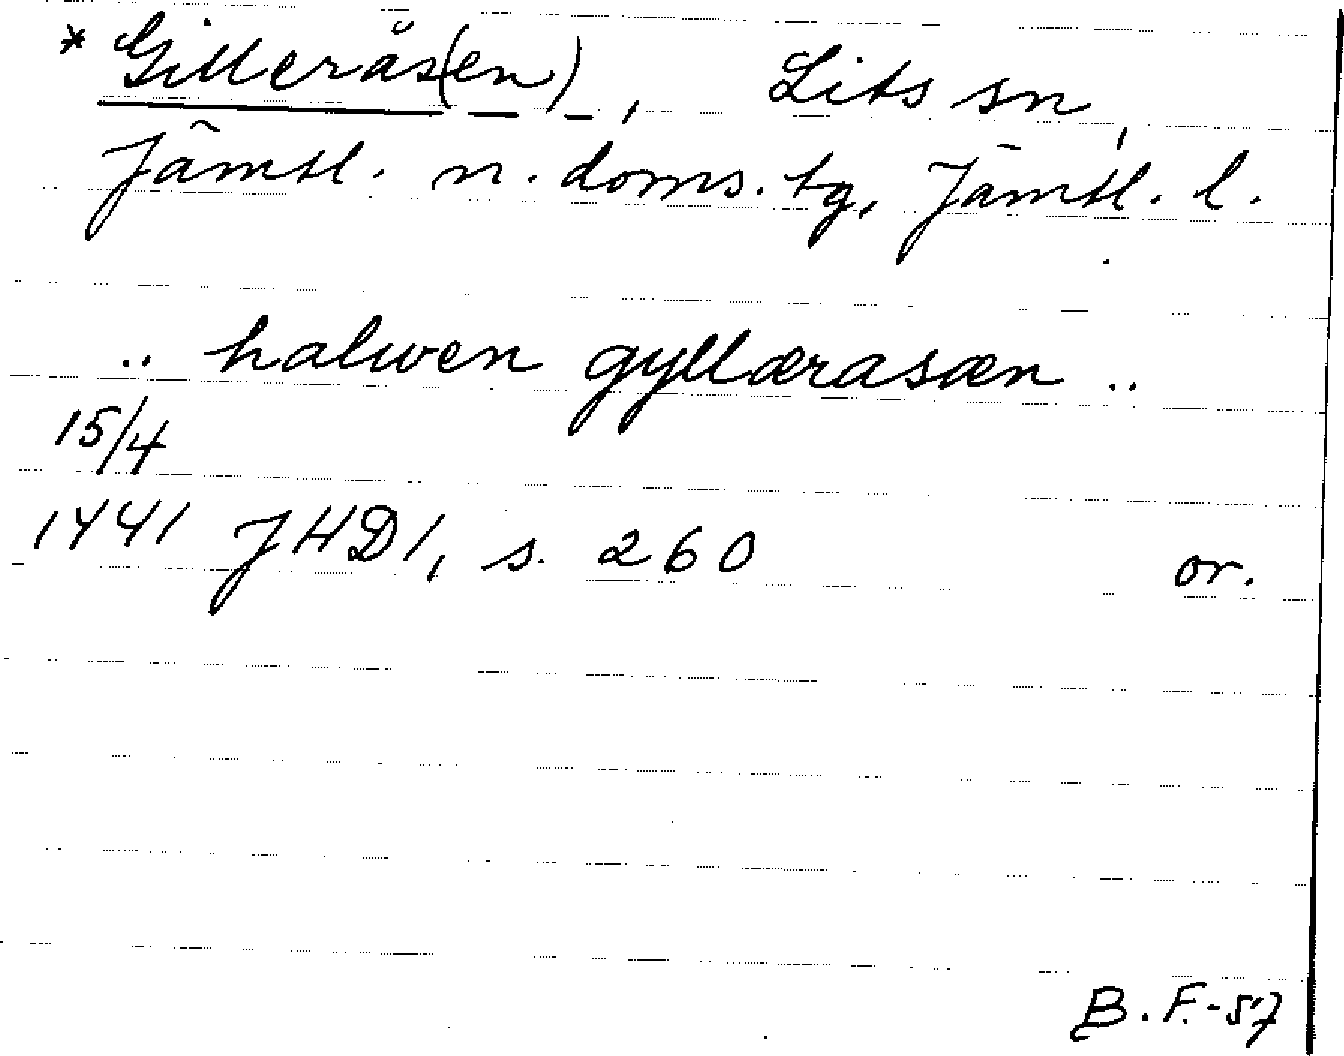 * Gilleråsen), Lits sn,
Jämtl. n. doms. tg, Jämtl. l.
.. halwen gyllærasæn ..
15/4
1441 JHD 1, s. 260 or.
B. F. - 57